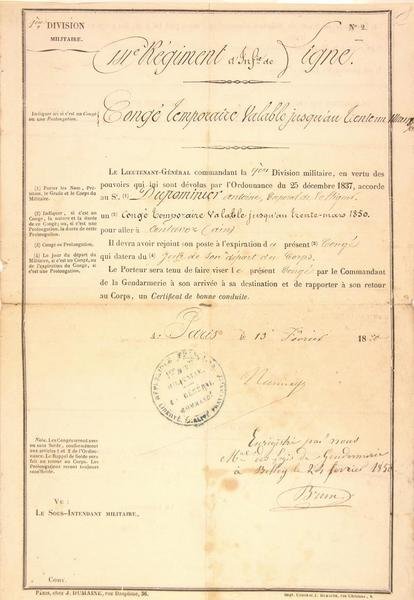 1ère DIVISION
MILITAIRE.
N° 2.
Régiment d'Infie de Ligne.
Indiquer ici si c'est un Congé
ou une Prolongation.
Congé temporaire Valable jusqu'au trente un Mars
LE LIEUTENANT-GÉNÉRAL commandant la 1ère Division militaire, en vertu des
pouvoirs qui lui sont dévolus par l'Ordonnance du 25 décembre 1837, accorde
(1) Porter les Nom, Prénoms, le Grade et le Corps du
Militaire.
au Sr. (1) antoine, Caporal de Voltigeurs
(2) Indiquer, si c'est un
Congé, la nature et la durée
de ce Congé; si c'est une
Prolongation, la durée de cette
Prolongation.
un (2) Congé temporaire Valable jusqu'au trente-mars 1850.
pour aller à (ain)
(3) Congé ou Prolongation.
Il devra avoir rejoint son poste à l'expiration du présent (3) Congé
(4) Le jour du départ du
Militaire, si c'est un Congé, ou
de l'expiration du Congé, si
c'est une Prolongation.
qui datera du (4) Jour de son départ du Corps.
Le Porteur sera tenu de faire viser le présent Congé par le Commandant
de la Gendarmerie à son arrivée à sa destination et de rapporter à son retour
au Corps, un Certificat de bonne conduite.
A Paris le 13 Février 1850
RÉPUBLIQUE FRANÇAISE
MILITAIRE
GÉNÉRAL
COMMANDANT
LIBERTÉ, EGALITÉ, FRATERNITÉ
Nota. Les Congés seront avec
ou sans Solde, conformément
aux articles 1 et 2 de l'Ordonnance.
Le Rappel de Solde sera
fait au retour au Corps. Les
Prolongations seront toujours
sans Solde.
Enregistré par nous
Mal des logis de Gendarmerie
à Belley le 24 février 1850
Brun
Vu :
LE SOUS-INTENDANT MILITAIRE,
PARIS, chez J. DUMAINE, rue Dauphine, 36.